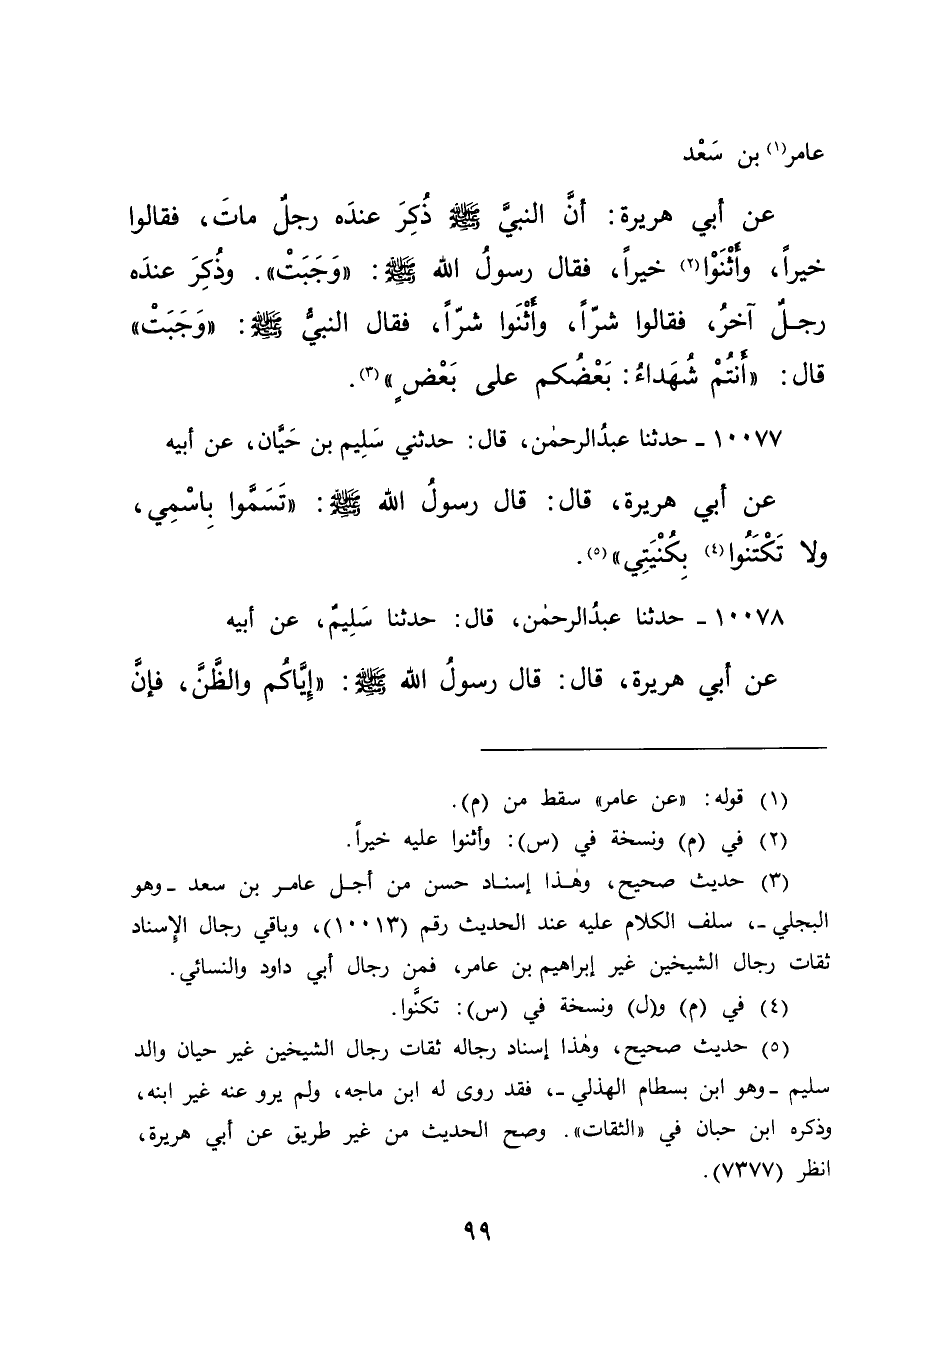 عامر(١) بن سَعْد
عن أبي هريرة: أنَّ النبيَّ ﷺ ذُكِرَ عندَه رجلٌ ماتَ، فقالوا
خيراً، وأَثْنَوْا(٢) خيراً، فقال رسولُ الله ﷺ: «وَجَبَتْ». وذُكِرَ عندَه
رجـلٌ آخرُ، فقالوا شرّاً، وأَثْنَوا شرّاً، فقال النبيُّ ﷺ: «وَجَبَتْ»
قال: «أَنتُمْ شُهَداءُ: بَعْضُكم على بَعْضٍ»(٣).
١٠٠٧٧ ـ حدثنا عبدُالرحمٰن، قال: حدثني سَلِيم بن حَيَّان، عن أبيه
عن أبي هريرة، قال: قال رسولُ الله ﷺ: «تَسَمَّوا بِاسْمِي،
ولا تَكْتَنُوا(٤) بِكُنْيَتِي»(٥).
١٠٠٧٨ ـ حدثنا عبدُالرحمٰن، قال: حدثنا سَلِيمٌ، عن أبيه
عن أبي هريرة، قال: قال رسولُ الله ﷺ: «إِيَّاكُم والظَّنَّ، فإنَّ
(١) قوله: «عن عامر» سقط من (م).
(٢) في (م) ونسخة في (س): وأثنوا عليه خيراً.
(٣) حديث صحيح، وهٰـذا إسنـاد حسن من أجـل عامـر بن سعد ـ وهو
البجلي ـ، سلف الكلام عليه عند الحديث رقم (١٠٠١٣)، وباقي رجال الإِسناد
ثقات رجال الشيخين غير إبراهيم بن عامر، فمن رجال أبي داود والنسائي.
(٤) في (م) و(ل) ونسخة في (س): تكنَّوا.
(٥) حديث صحيح، وهٰذا إسناد رجاله ثقات رجال الشيخين غير حيان والد
سليم ـ وهو ابن بسطام الهذلي ـ، فقد روى له ابن ماجه، ولم يرو عنه غير ابنه،
وذكره ابن حبان في «الثقات». وصح الحديث من غير طريق عن أبي هريرة،
انظر (٧٣٧٧).
٩٩